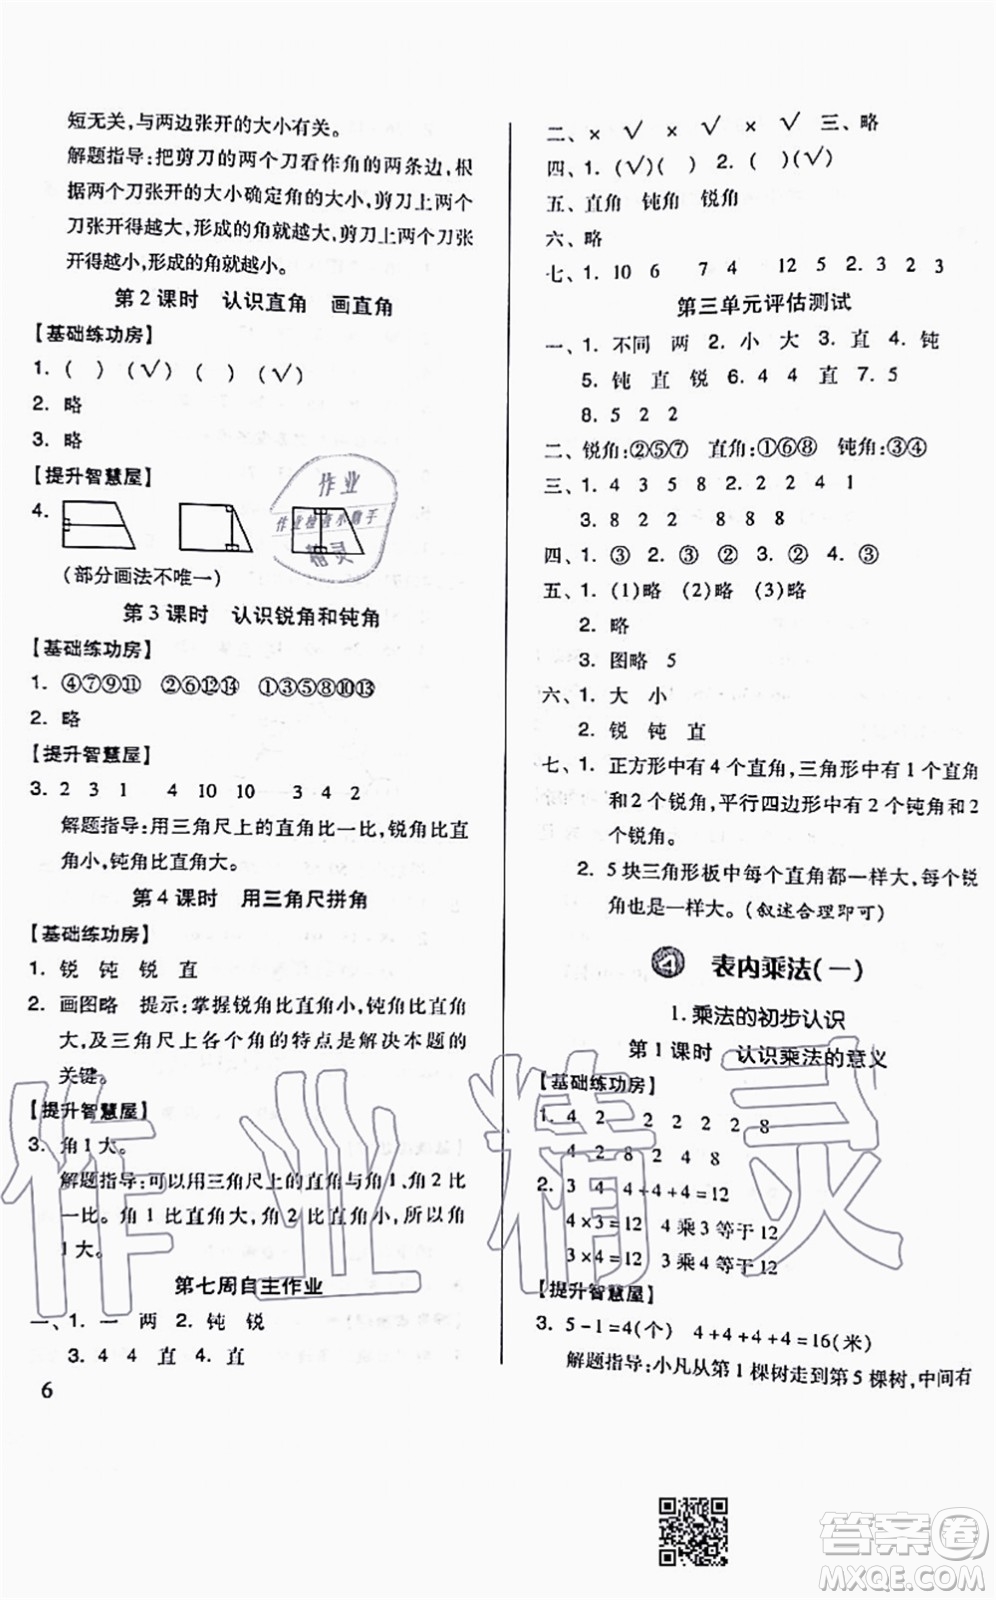 短无关,与两边张开的大小有关。
解题指导:把剪刀的两个刀看作角的两条边,根
据两个刀张开的大小确定角的大小,剪刀上两个
刀张开得越大,形成的角就越大,剪刀上两个刀张
开得越小,形成的角就越小。
第2课时 认识直角 画直角
【基础练功房】
1. ( ) (√) ( ) (√)
2. 略
3. 略
【提升智慧屋】
4.
(部分画法不唯一)
第3课时 认识锐角和钝角
【基础练功房】
1. ④⑦⑨⑪ ②⑥⑫⑭ ①③⑤⑧⑩⑬
2. 略
【提升智慧屋】
3. 2 3 1 4 10 10 3 4 2
解题指导:用三角尺上的直角比一比,锐角比直
角小,钝角比直角大。
第4课时 用三角尺拼角
【基础练功房】
1. 锐 钝 锐 直
2. 画图略 提示:掌握锐角比直角小,钝角比直角
大,及三角尺上各个角的特点是解决本题的
关键。
【提升智慧屋】
3. 角1大。
解题指导:可以用三角尺上的直角与角1、角2比
一比。角1比直角大,角2比直角小,所以角
1大。
第七周自主作业
一、1. 一 两 2. 钝 锐
3. 4 4 直 4. 直
6
二、× √ × √ × √ 三、略
四、1. (√)( ) 2. ( )(√)
五、直角 钝角 锐角
六、略
七、1. 10 6 7 4 12 5 2. 3 2 3
第三单元评估测试
一、1. 不同 两 2. 小 大 3. 直 4. 钝
5. 钝 直 锐 6. 4 4 直 7. 5
8. 5 2 2
二、锐角:②⑤⑦ 直角:①⑥⑧ 钝角:③④
三、1. 4 3 5 8 2. 2 2 4 1
3. 8 2 2 8 8 8
四、1. ③ 2. ③ 3. ② 4. ③
五、1. (1)略 (2)略 (3)略
2. 略
3. 图略 5
六、1. 大 小
2. 锐 钝 直
七、1. 正方形中有4个直角,三角形中有1个直角
和2个锐角,平行四边形中有2个钝角和2
个锐角。
2. 5块三角形板中每个直角都一样大,每个锐
角也是一样大。(叙述合理即可)
4 表内乘法(一)
1.乘法的初步认识
第1课时 认识乘法的意义
【基础练功房】
1. 4 2 2 2 2 2 8
4 2 8 2 4 8
2. 3 4 4+4+4=12
4×3=12 4乘3等于12
3×4=12 3乘4等于12
【提升智慧屋】
3. 5-1=4(个) 4+4+4+4=16(米)
解题指导:小凡从第1棵树走到第5棵树,中间有
作业
作业检查小助手
精灵
作业精灵
答案圈
MXQE.COM